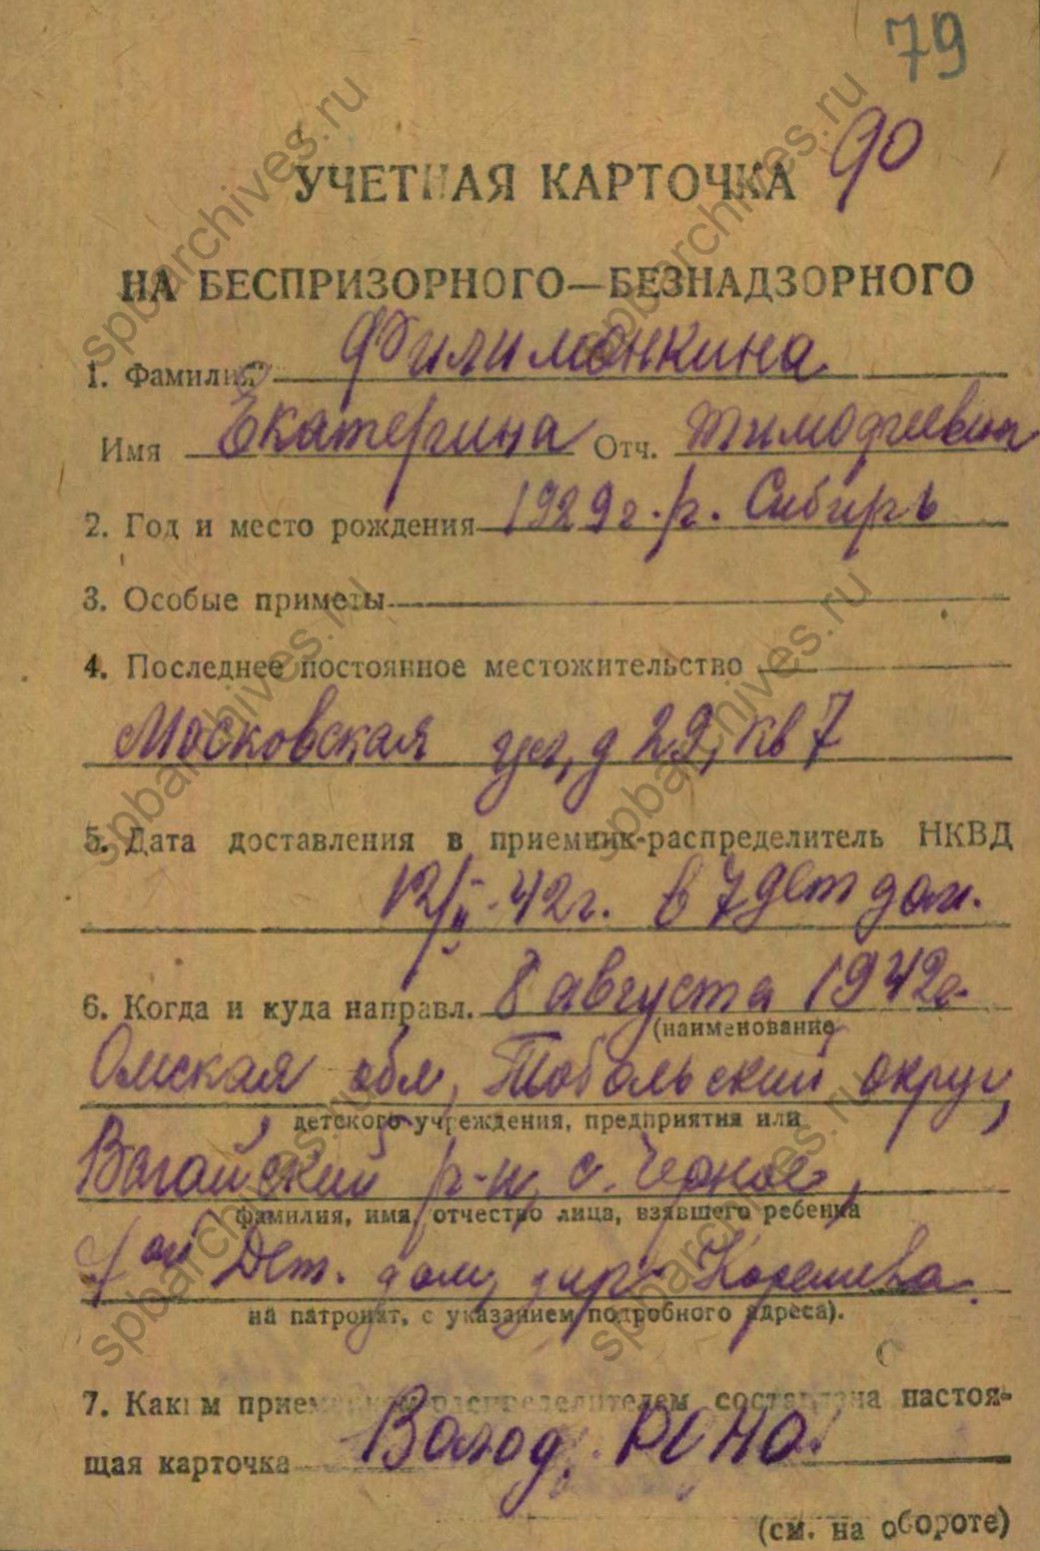 79
90
УЧЕТНАЯ КАРТОЧКА
НА БЕСПРИЗОРНОГО—БЕЗНАДЗОРНОГО
1. Фамилия Филимонкина
Имя Екатерина Отч. Тимофеевна
2. Год и место рождения 1929 г. р. Сибирь
3. Особые приметы
4. Последнее постоянное местожительство
Московская ул, д 29, кв 7
5. Дата доставления в приемник-распределитель НКВД
12/II-42г. в 7 дет дом.
6. Когда и куда направл. 8 августа 1942г.
(наименование
Омская обл, Тобольский округ,
детского учреждения, предприятия или
Вагайский р-н, с. Черное,
фамилия, имя, отчество лица, взявшего ребенка
Дет. дом, дир.
на патронат, с указанием подробного адреса).
7. Каким приемником-распределителем составлена настоя-
щая карточка Волод. РОНО.
(см. на обороте)
spbarchives.ru
spbarchives.ru
spbarchives.ru
spbarchives.ru
spbarchives.ru
spbarchives.ru